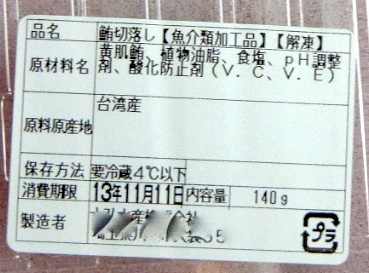 品名 鮪切落し【魚介類加工品】【解凍】
原材料名 黄肌鮪、植物油脂、食塩、pH調整
剤、酸化防止剤(V.C、V.E)
原料原産地 台湾産
保存方法 要冷蔵4℃以下
消費期限 13年11月11日 内容量 140g
製造者
プラ